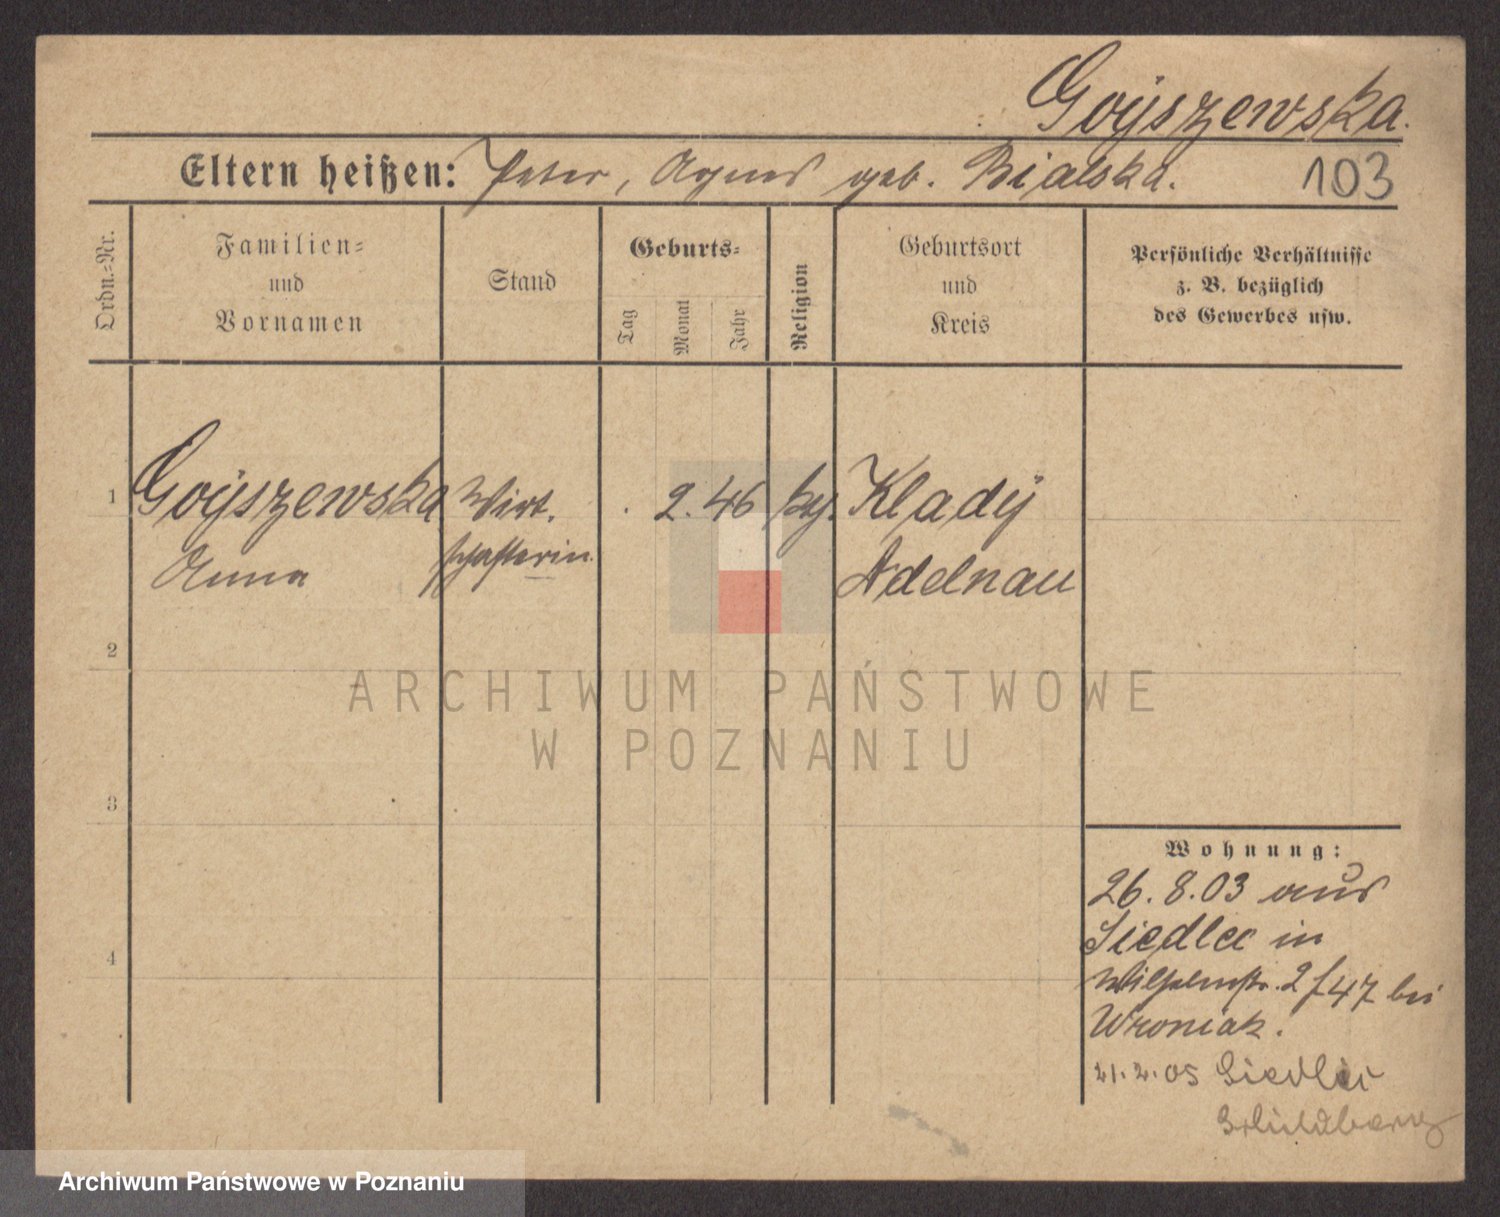 Goÿszewska.
Eltern heißen: Peter, Agnes geb. Bialska. 103
Ordn.=Nr.
Familien=
und
Vornamen
Stand
Geburts=
Tag
Monat
Jahr
Religion
Geburtsort
und
Kreis
Persönliche Verhältnisse
z. B. bezüglich
des Gewerbes usw.
1 Goÿszewska Wirt. . 2. 46 Kladÿ
Anna schafterin Adelnau
2
3
4
Wohnung:
26. 8. 03 aus
Siedlec in
Wilhelmstr. 247 bei
Wroniak.
21. 2. 05 Siedlec
Schildberg
ARCHIWUM PAŃSTWOWE
W POZNANIU
Archiwum Państwowe w Poznaniu